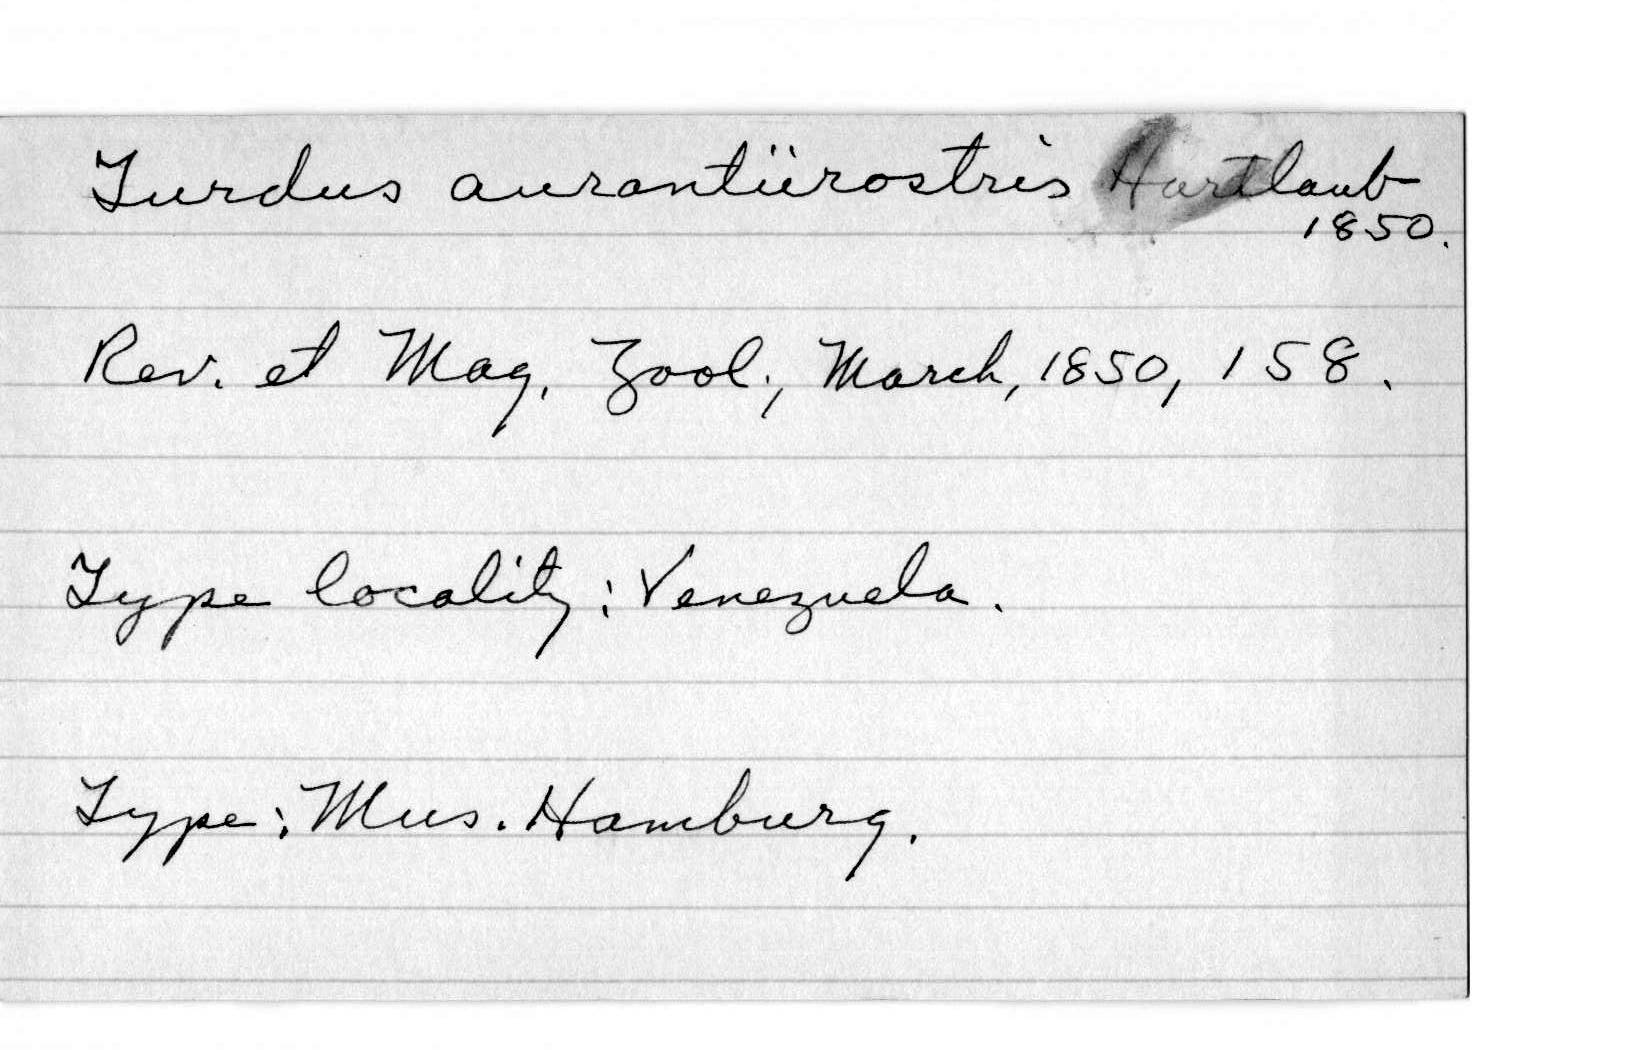 Turdus aurantiirostris Hartlaub
1850.
Rev. et Mag. Zool., March, 1850, 158.
Type locality: Venezuela.
Type: Mus. Hamburg.